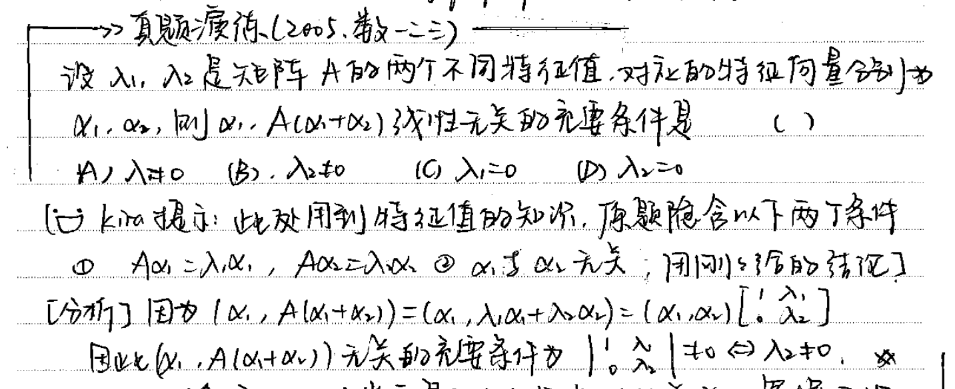 →> 真题演练(2005.数一二三)
设 λ₁, λ₂ 是矩阵 A 的两个不同特征值.对应的特征向量分别为
α₁, α₂, 则 α₁, A(α₁+α₂) 线性无关的充要条件是 ( )
(A) λ₁≠0 (B). λ₂≠0 (C) λ₁=0 (D) λ₂=0
[kira提示: 此处用到特征值的知识. 原题隐含以下两个条件
① Aα₁=λ₁α₁, Aα₂=λ₂α₂ ② α₁与α₂无关; 用刚才给的结论]
[分析] 因为 (α₁, A(α₁+α₂))=(α₁, λ₁α₁+λ₂α₂)=(α₁,α₂)[1 λ₁ 0 λ₂]
因此(α₁, A(α₁+α₂))无关的充要条件为 |1 λ₁ 0 λ₂|≠0 ⇔ λ₂≠0.